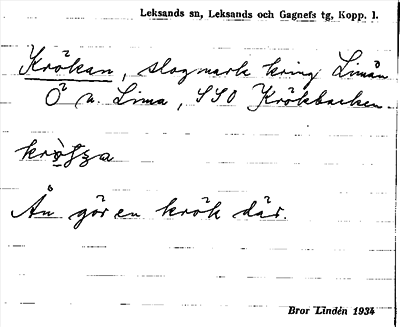 Leksands sn, Leksands och Gagnefs tg, Kopp. l.
Krökan, slogmark kring Limån
Ö n. Lima, SSO Krökbacken.
Ån gör en krök där.
Bror Lindén 1934